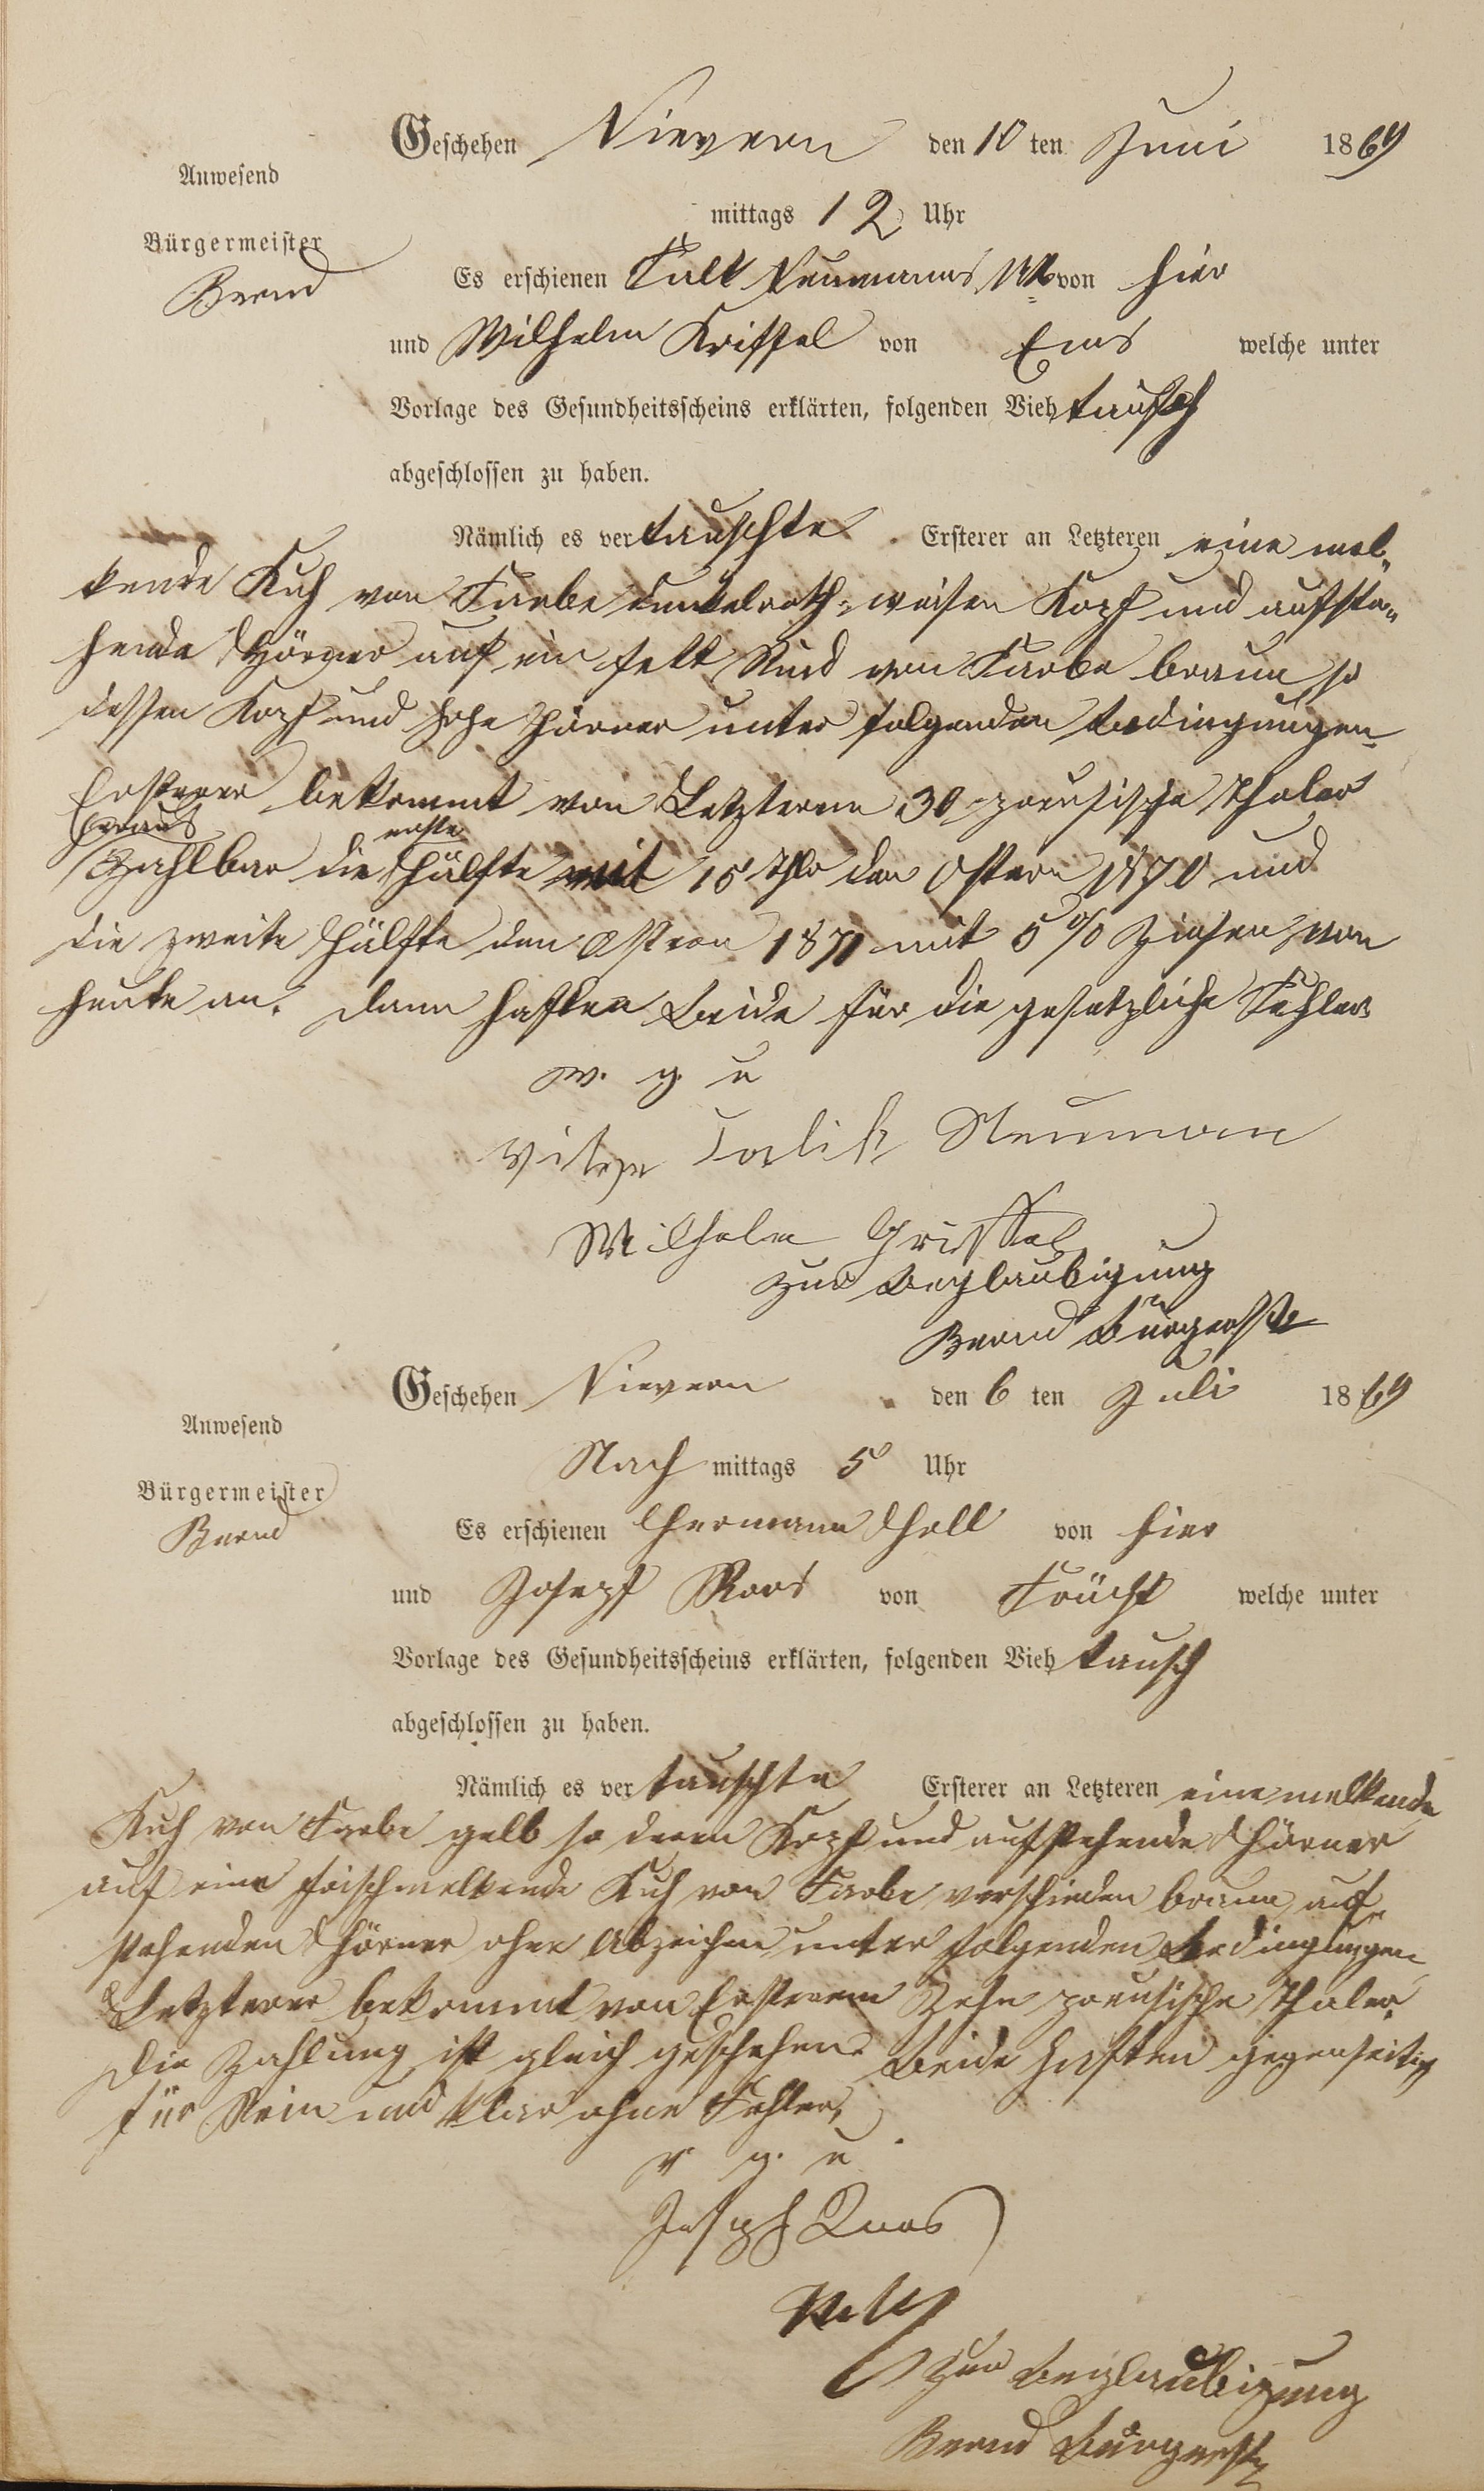 Geschehen Nievern den 10 ten Juni 1869
Anwesend
mittags 12 Uhr
Bürgermeister
Bernd
Es erschienen Neumanns von hier
und Wilhelm Kriffel von Ems welche unter
Vorlage des Gesundheitsscheins erklärten, folgenden Viehtausch
abgeschlossen zu haben.
Nämlich es vertauschte Ersterer an Letzteren eine mel-
kende Kuh von Farbe dunkelroth, weisen Kopf und aufste-
hende Hörner auf ein fett Rind von Farbe braun, so
dessen Kopf und hohe Hörner unter folgenden Bedingungen
Ersterer bekommt von Letzterem 30 preusische Thaler
heraus
Zahlbar die erste Hälfte mit 15 Thlr den Ostern 1870 und
die zweite Hälfte den Ostern 1871 mit 5 % Zinsen von
heute an. Dann haften Beide für die gesetzliche Fehler
v. g. u
Neuman
Wilhelm Griffel
Zur Beglaubigung
Bernd Bürgerstr
Geschehen Nievern den 6 ten Juli 1869
Anwesend
Nach mittags 5 Uhr
Bürgermeister
Bernd
Es erschienen Hermann Holl von hier
und Josepf Roos von Frücht welche unter
Vorlage des Gesundheitsscheins erklärten, folgenden Viehtausch
abgeschlossen zu haben.
Nämlich es vertauschte Ersterer an Letzteren eine melkende
Kuh von Farbe gelb so deren Kopf und aufstehende Hörner
auf eine frischmelkende Kuh von Farbe verschieden braun, auf-
stehenden Hörner ohne Abzeichen unter folgenden Bedingungen
Letzterer bekommt von Ersterem Zehn preusische Thaler.
Die Zahlung ist gleich geschehen. Beide haften gegenseitig
für Rein und klar ohne Fehler.
v. g. u.
Joseph Roos
Zur Beglaubigung
Bernd Bürgerstr